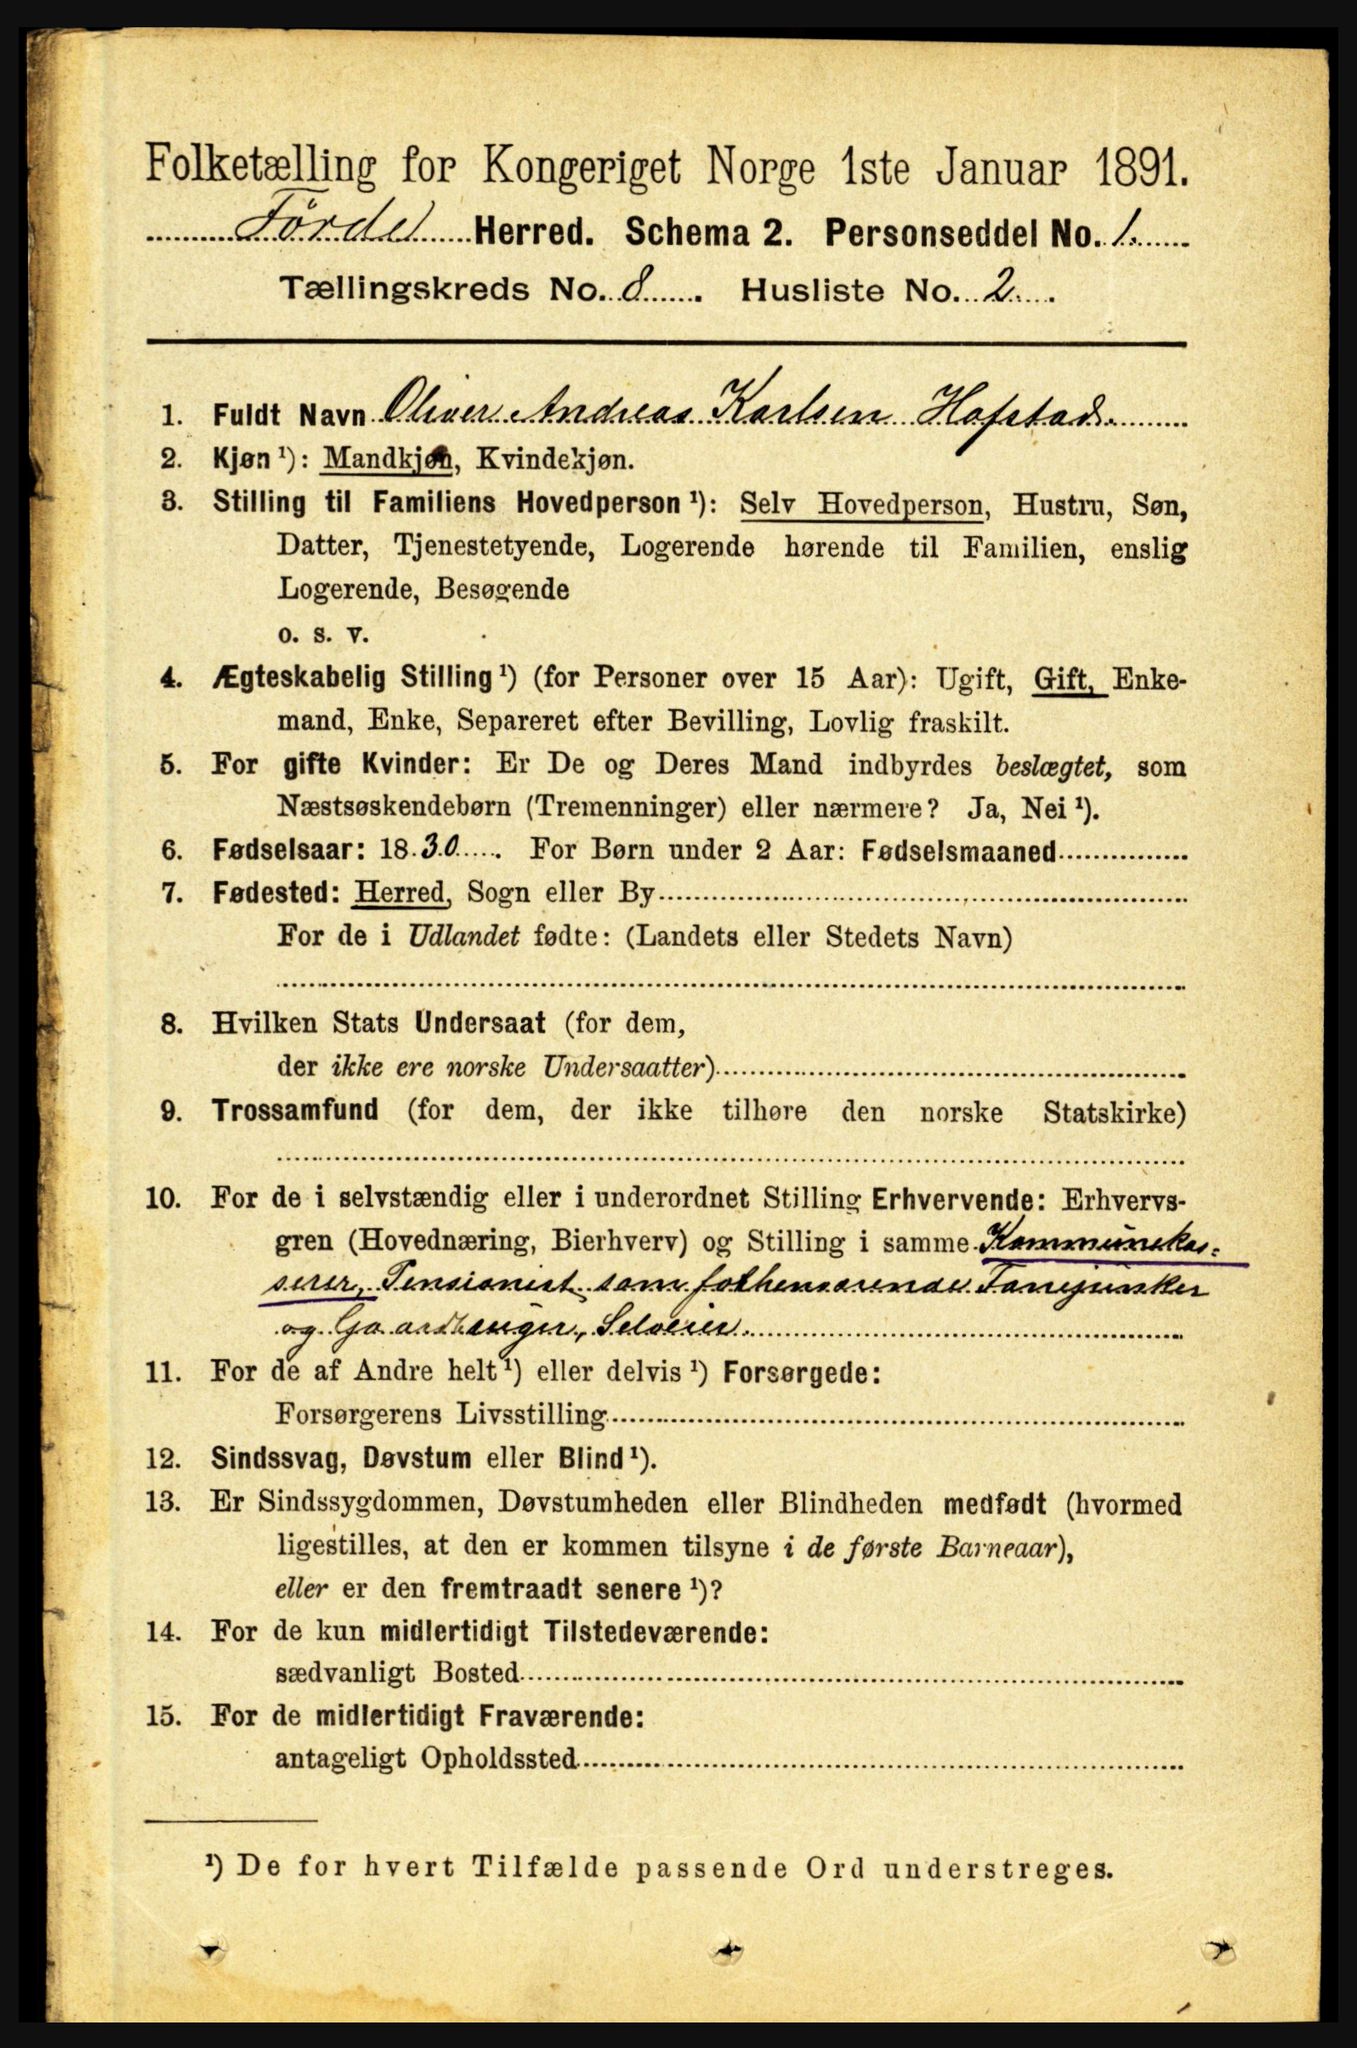 Folketælling for Kongeriget Norge 1ste Januar 1891.
Förde Herred. Schema 2. Personseddel No. 1.
Tællingskreds No. 8. Husliste No. 2.
1. Fuldt Navn Oliver Andreas Karlsen Hafstad.
2. Kjøn ¹): Mandkjøn, Kvindekjøn.
3. Stilling til Familiens Hovedperson ¹): Selv Hovedperson, Hustru, Søn,
Datter, Tjenestetyende, Logerende hørende til Familien, enslig
Logerende, Besøgende
o. s. v.
4. Ægteskabelig Stilling ¹) (for Personer over 15 Aar): Ugift, Gift, Enke-
mand, Enke, Separeret efter Bevilling, Lovlig fraskilt.
5. For gifte Kvinder: Er De og Deres Mand indbyrdes beslægtet, som
Næstsøskendebørn (Tremenninger) eller nærmere? Ja, Nei ¹).
6. Fødselsaar: 1830. For Børn under 2 Aar: Fødselsmaaned
7. Fødested: Herred, Sogn eller By
For de i Udlandet fødte: (Landets eller Stedets Navn)
8. Hvilken Stats Undersaat (for dem,
der ikke ere norske Undersaatter)
9. Trossamfund (for dem, der ikke tilhøre den norske Statskirke)
10. For de i selvstændig eller i underordnet Stilling Erhvervende: Erhvervs-
gren (Hovednæring, Bierhverv) og Stilling i samme Kommunekas-
serer, Pensionist som forhenværende Fanejunker
og Gaardbruger, Selveier
11. For de af Andre helt ¹) eller delvis ¹) Forsørgede:
Forsørgerens Livsstilling
12. Sindssvag, Døvstum eller Blind ¹).
13. Er Sindssygdommen, Døvstumheden eller Blindheden medfødt (hvormed
ligestilles, at den er kommen tilsyne i de første Barneaar),
eller er den fremtraadt senere ¹)?
14. For de kun midlertidigt Tilstedeværende:
sædvanligt Bosted
15. For de midlertidigt Fraværende:
antageligt Opholdssted
¹) De for hvert Tilfælde passende Ord understreges.